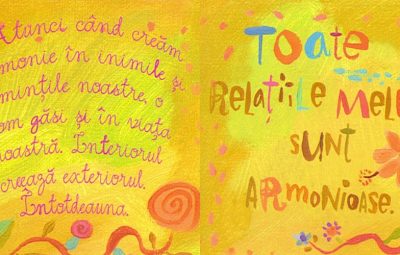 Atunci când creăm
monie în inimile și
mințile noastre, o
om găsi și în viața
noastră. Interiorul
creează exteriorul.
Întotdeauna.
Toate
Relațiile Mele
sunt
Armonioase.